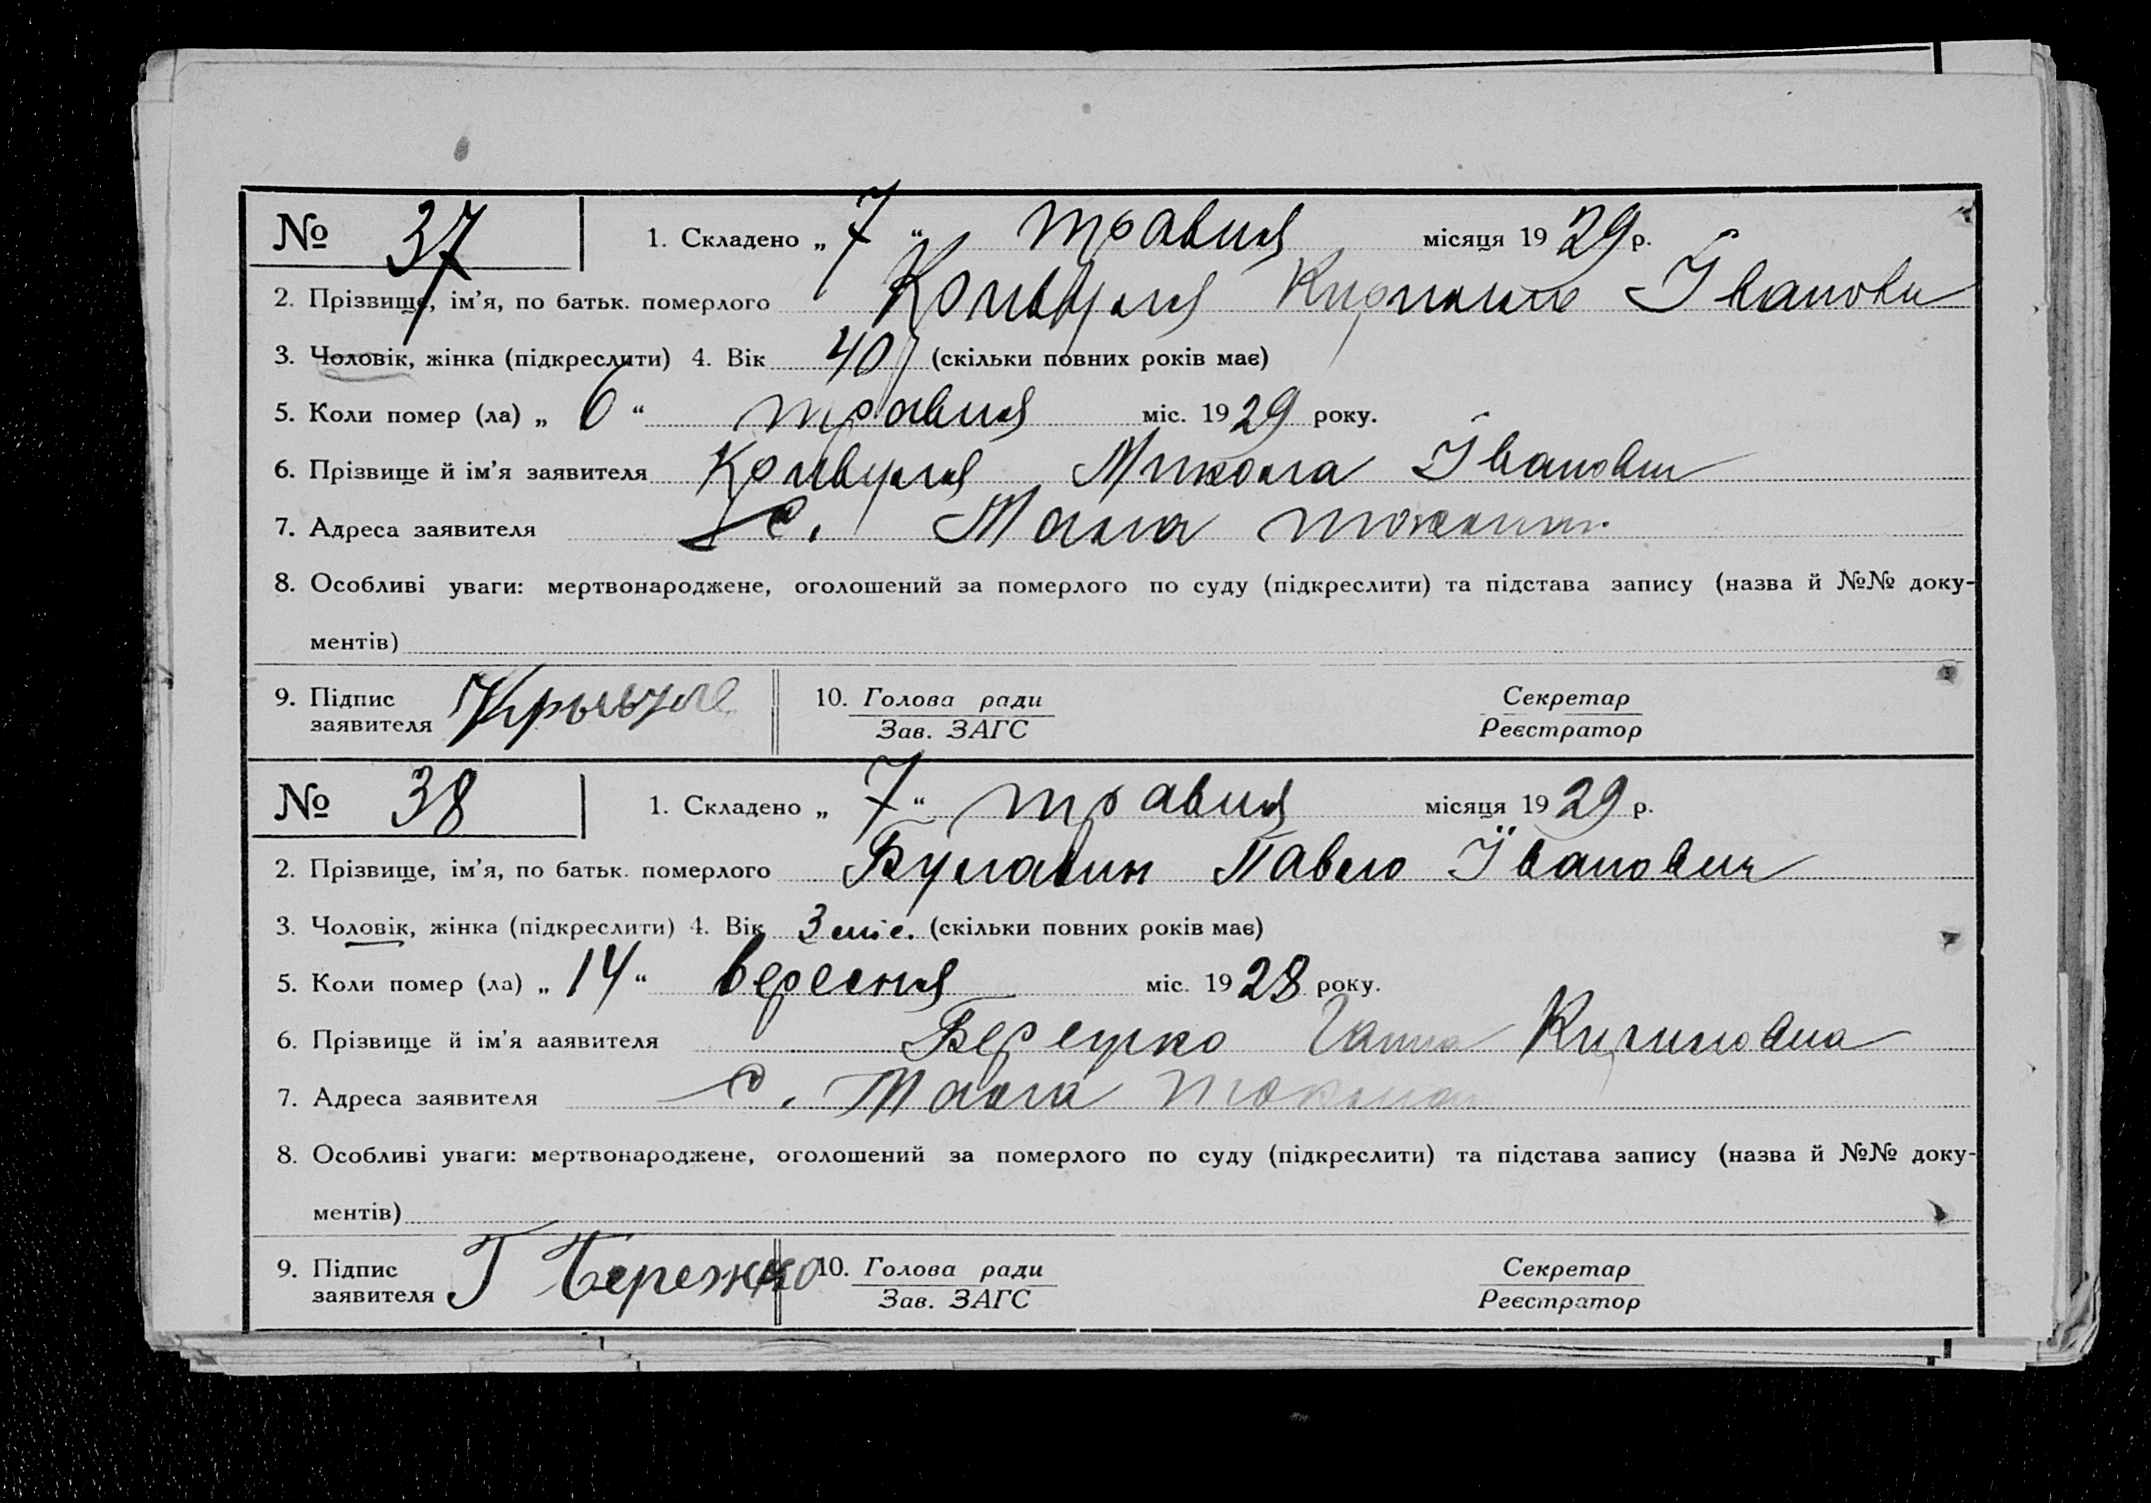 № 37 1. Складено „ 7 “ травня місяця 19 29 р.
2. Прізвище, ім'я, по батьк. померлого Кривуля Іванови
3. Чоловік, жінка (підкреслити) 4. Вік 40 (скільки повних років має)
5. Коли помер (ла) „ 6 “ травня міс. 19 29 року.
6. Прізвище й ім'я заявителя Кривуля Микола Іванович
7. Адреса заявителя с. Мала Токмач.
8. Особливі уваги: мертвонароджене, оголошений за померлого по суду (підкреслити) та підстава запису (назва й №№ доку-
ментів)
9. Підпис заявителя Крывуле 10. Голова ради Секретар
Зав. ЗАГС Реєстратор
№ 38 1. Складено „ 7 “ травня місяця 19 29 р.
2. Прізвище, ім'я, по батьк. померлого Булавин Павло Іванович
3. Чоловік, жінка (підкреслити) 4. Вік 3 міс. (скільки повних років має)
5. Коли помер (ла) „ 14 “ вересня міс. 19 28 року.
6. Прізвище й ім'я заявителя Бережко Ганна Кириловна
7. Адреса заявителя с. Мала
8. Особливі уваги: мертвонароджене, оголошений за померлого по суду (підкреслити) та підстава запису (назва й №№ доку-
ментів)
9. Підпис заявителя Г Бережко 10. Голова ради Секретар
Зав. ЗАГС Реєстратор